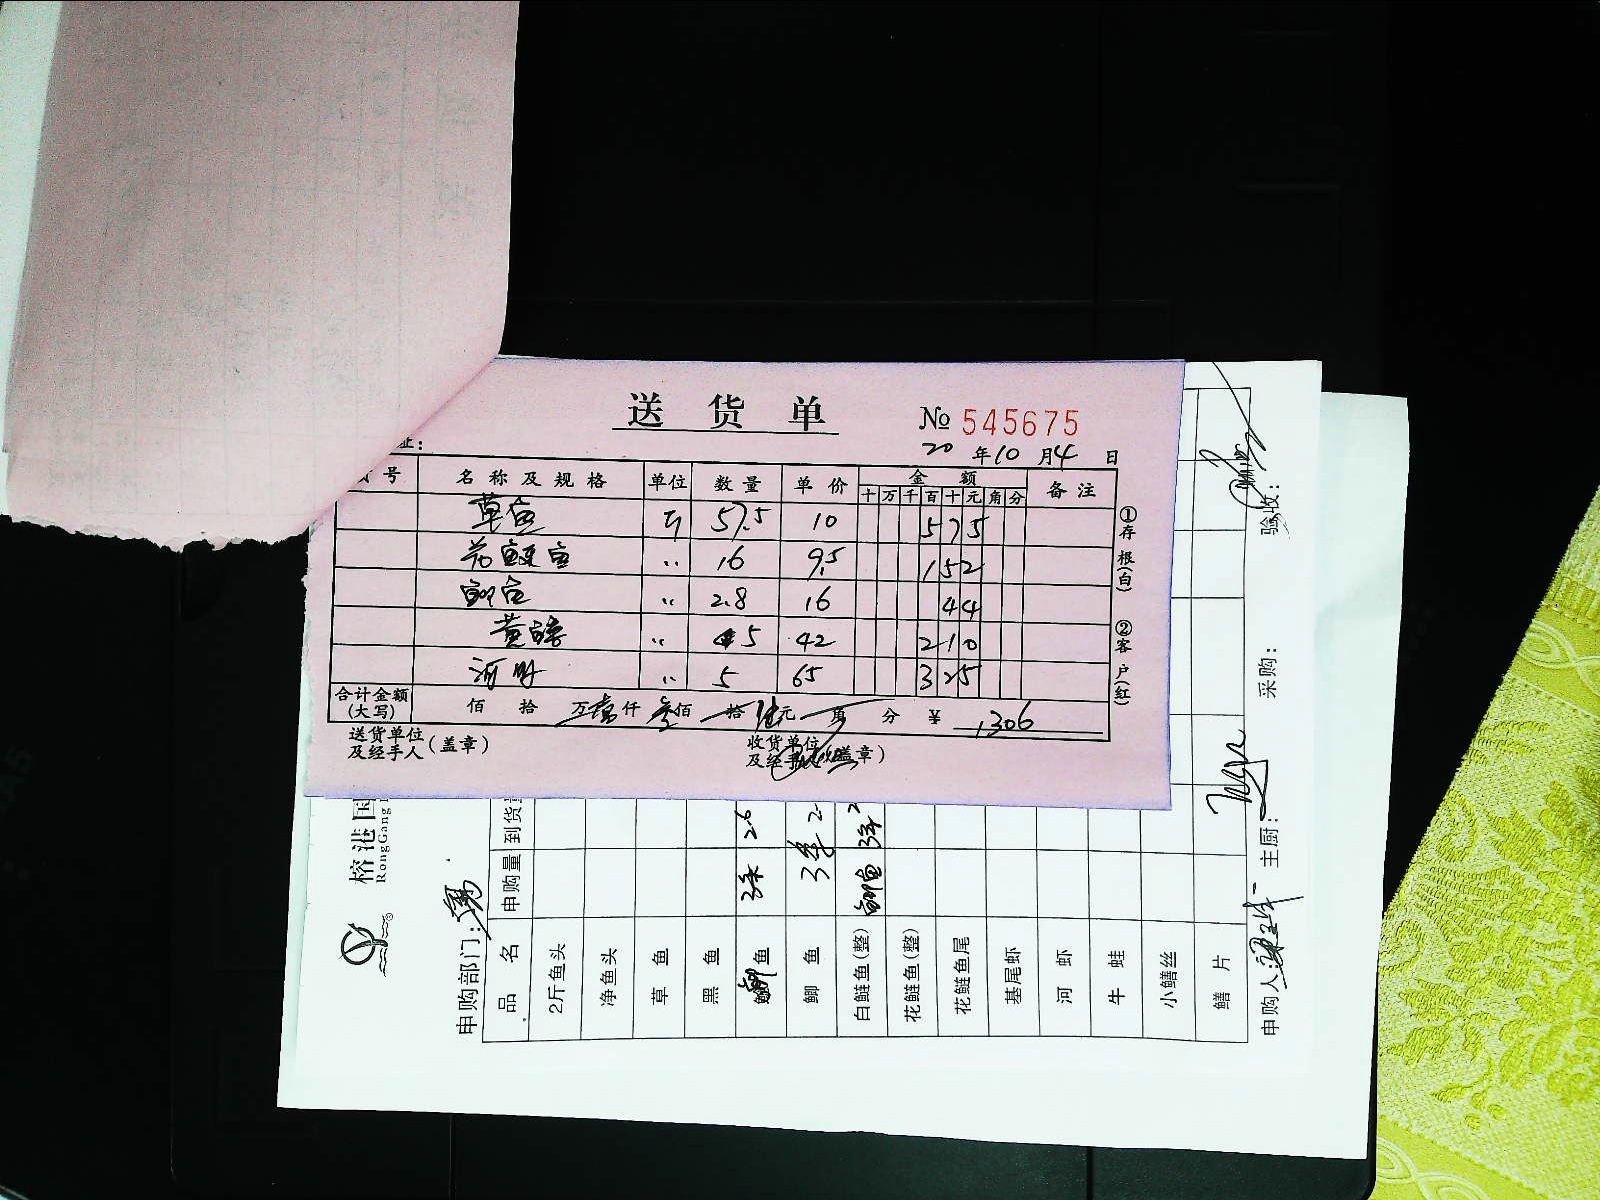 送货单
№ 545675
址:
20 年 10 月 4 日
号 名称及规格 单位 数量 单价 金额 备注
十 万 千 百 十 元 角 分
草鱼 斤 57.5 10 575
花鲢鱼 〃 16 9.5 152
鲫鱼 〃 2.8 16 44
黄鳝 〃 5 42 210
河虾 〃 5 65 325
合计金额(大写) 佰 拾 万 壹 仟 叁 佰 拾 陆 元 角 分 ¥ 1306
送货单位及经手人(盖章)
收货单位及经手人(盖章)
①存根(白)
②客户(红)
榕港国
RongGang
申购部门:
品名 申购量 到货
2斤鱼头
净鱼头
草鱼
黑鱼
鱼 3条 2.6
鲫鱼
白鲢鱼(整) 鲫鱼 3条
花鲢鱼(整)
花鲢鱼尾
基尾虾
河虾
牛蛙
小鳝丝
鳝片
申购人:
主厨:
采购:
验收: